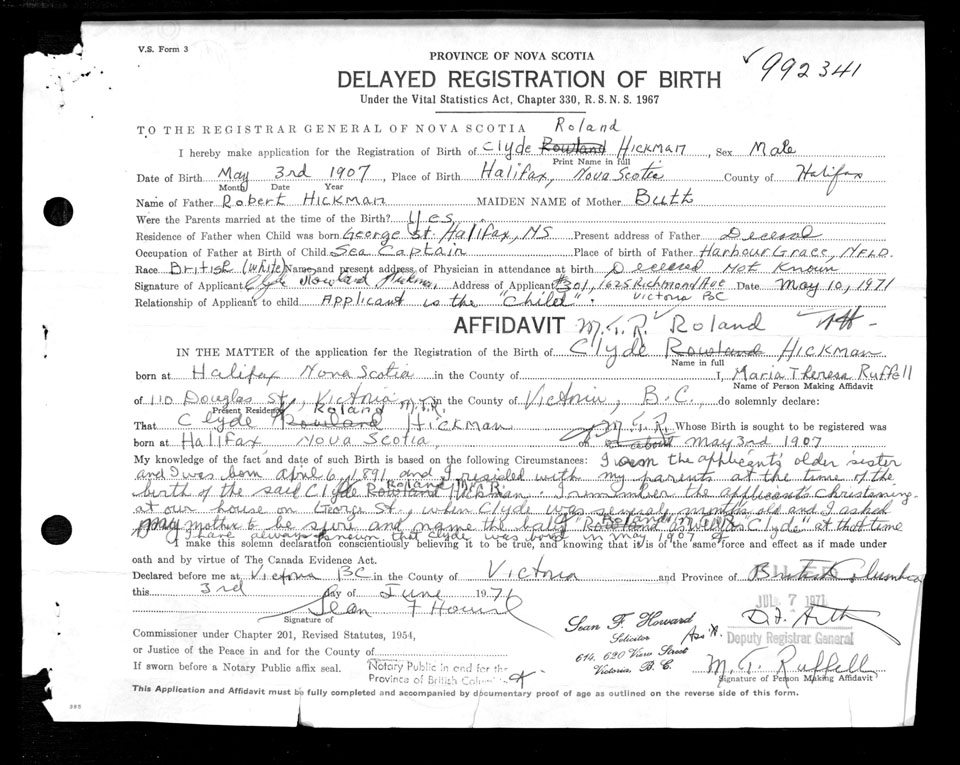 V.S. Form 3
PROVINCE OF NOVA SCOTIA
992341
DELAYED REGISTRATION OF BIRTH
Under the Vital Statistics Act, Chapter 330, R.S.N.S. 1967
TO THE REGISTRAR GENERAL OF NOVA SCOTIA Roland
I hereby make application for the Registration of Birth of Clyde Rowland HICKMAN, Sex Male
Print Name in full
Date of Birth May 3rd 1907, Place of Birth Halifax, Nova Scotia County of Halifax
Month Date Year
Name of Father Robert HICKMAN MAIDEN NAME of Mother Butt
Were the Parents married at the time of the Birth? Yes.
Residence of Father when Child was born George St. Halifax, NS Present address of Father Decesed
Occupation of Father at Birth of Child Sea Captain Place of birth of Father Harbour Grace, NFLD.
Race British (White) Name and present address of Physician in attendance at birth Decesed Not Known
Signature of Applicant Clyde Rowland Hickman, Address of Applicant #301, 1625 Richmond Ave Date May 10, 1971
Victoria BC
Relationship of Applicant to child Applicant is the "Child".
AFFIDAVIT M.T.R. Roland
IN THE MATTER of the application for the Registration of the Birth of Clyde Rowland HICKMAN
Name in full
born at Halifax Nova Scotia in the County of I, Maria Theresa Ruffell
Name of Person Making Affidavit
of 110 Douglas St., Victoria in the County of Victoria, B.C. do solemnly declare:
Present Residence Roland M.T.R.
That Clyde Rowland HICKMAN M.T.R. Whose Birth is sought to be registered was
born at Halifax, Nova Scotia, on about May 3rd 1907
My knowledge of the fact and date of such Birth is based on the following Circumstances: I am the applicant's older sister
and I was born April 6, 1891 and I resided with my parents at the time of the
Roland M.T.R.
birth of the said Clyde Rowland Hickman. I remember the applicant's Christening
at our house on George St., when Clyde was several months old and I asked
Roland M.T.R.
my mother to be sure and name the baby "Clyde" at that time
I have always known that Clyde was born in May 1907
I make this solemn declaration conscientiously believing it to be true, and knowing that it is of the same force and effect as if made under
oath and by virtue of The Canada Evidence Act.
Declared before me at Victoria BC in the County of Victoria and Province of British Columbia
this 3rd day of June 1971
JUL 7 1971
Sean F Howard
Signature of
Sean F. Howard
Solicitor
614, 620 View Street
Victoria, B.C.
Deputy Registrar General
Commissioner under Chapter 201, Revised Statutes, 1954,
or Justice of the Peace in and for the County of
If sworn before a Notary Public affix seal.
Notary Public in and for the
Province of British Columbia
M. T. Ruffell
Signature of Person Making Affidavit
This Application and Affidavit must be fully completed and accompanied by documentary proof of age as outlined on the reverse side of this form.